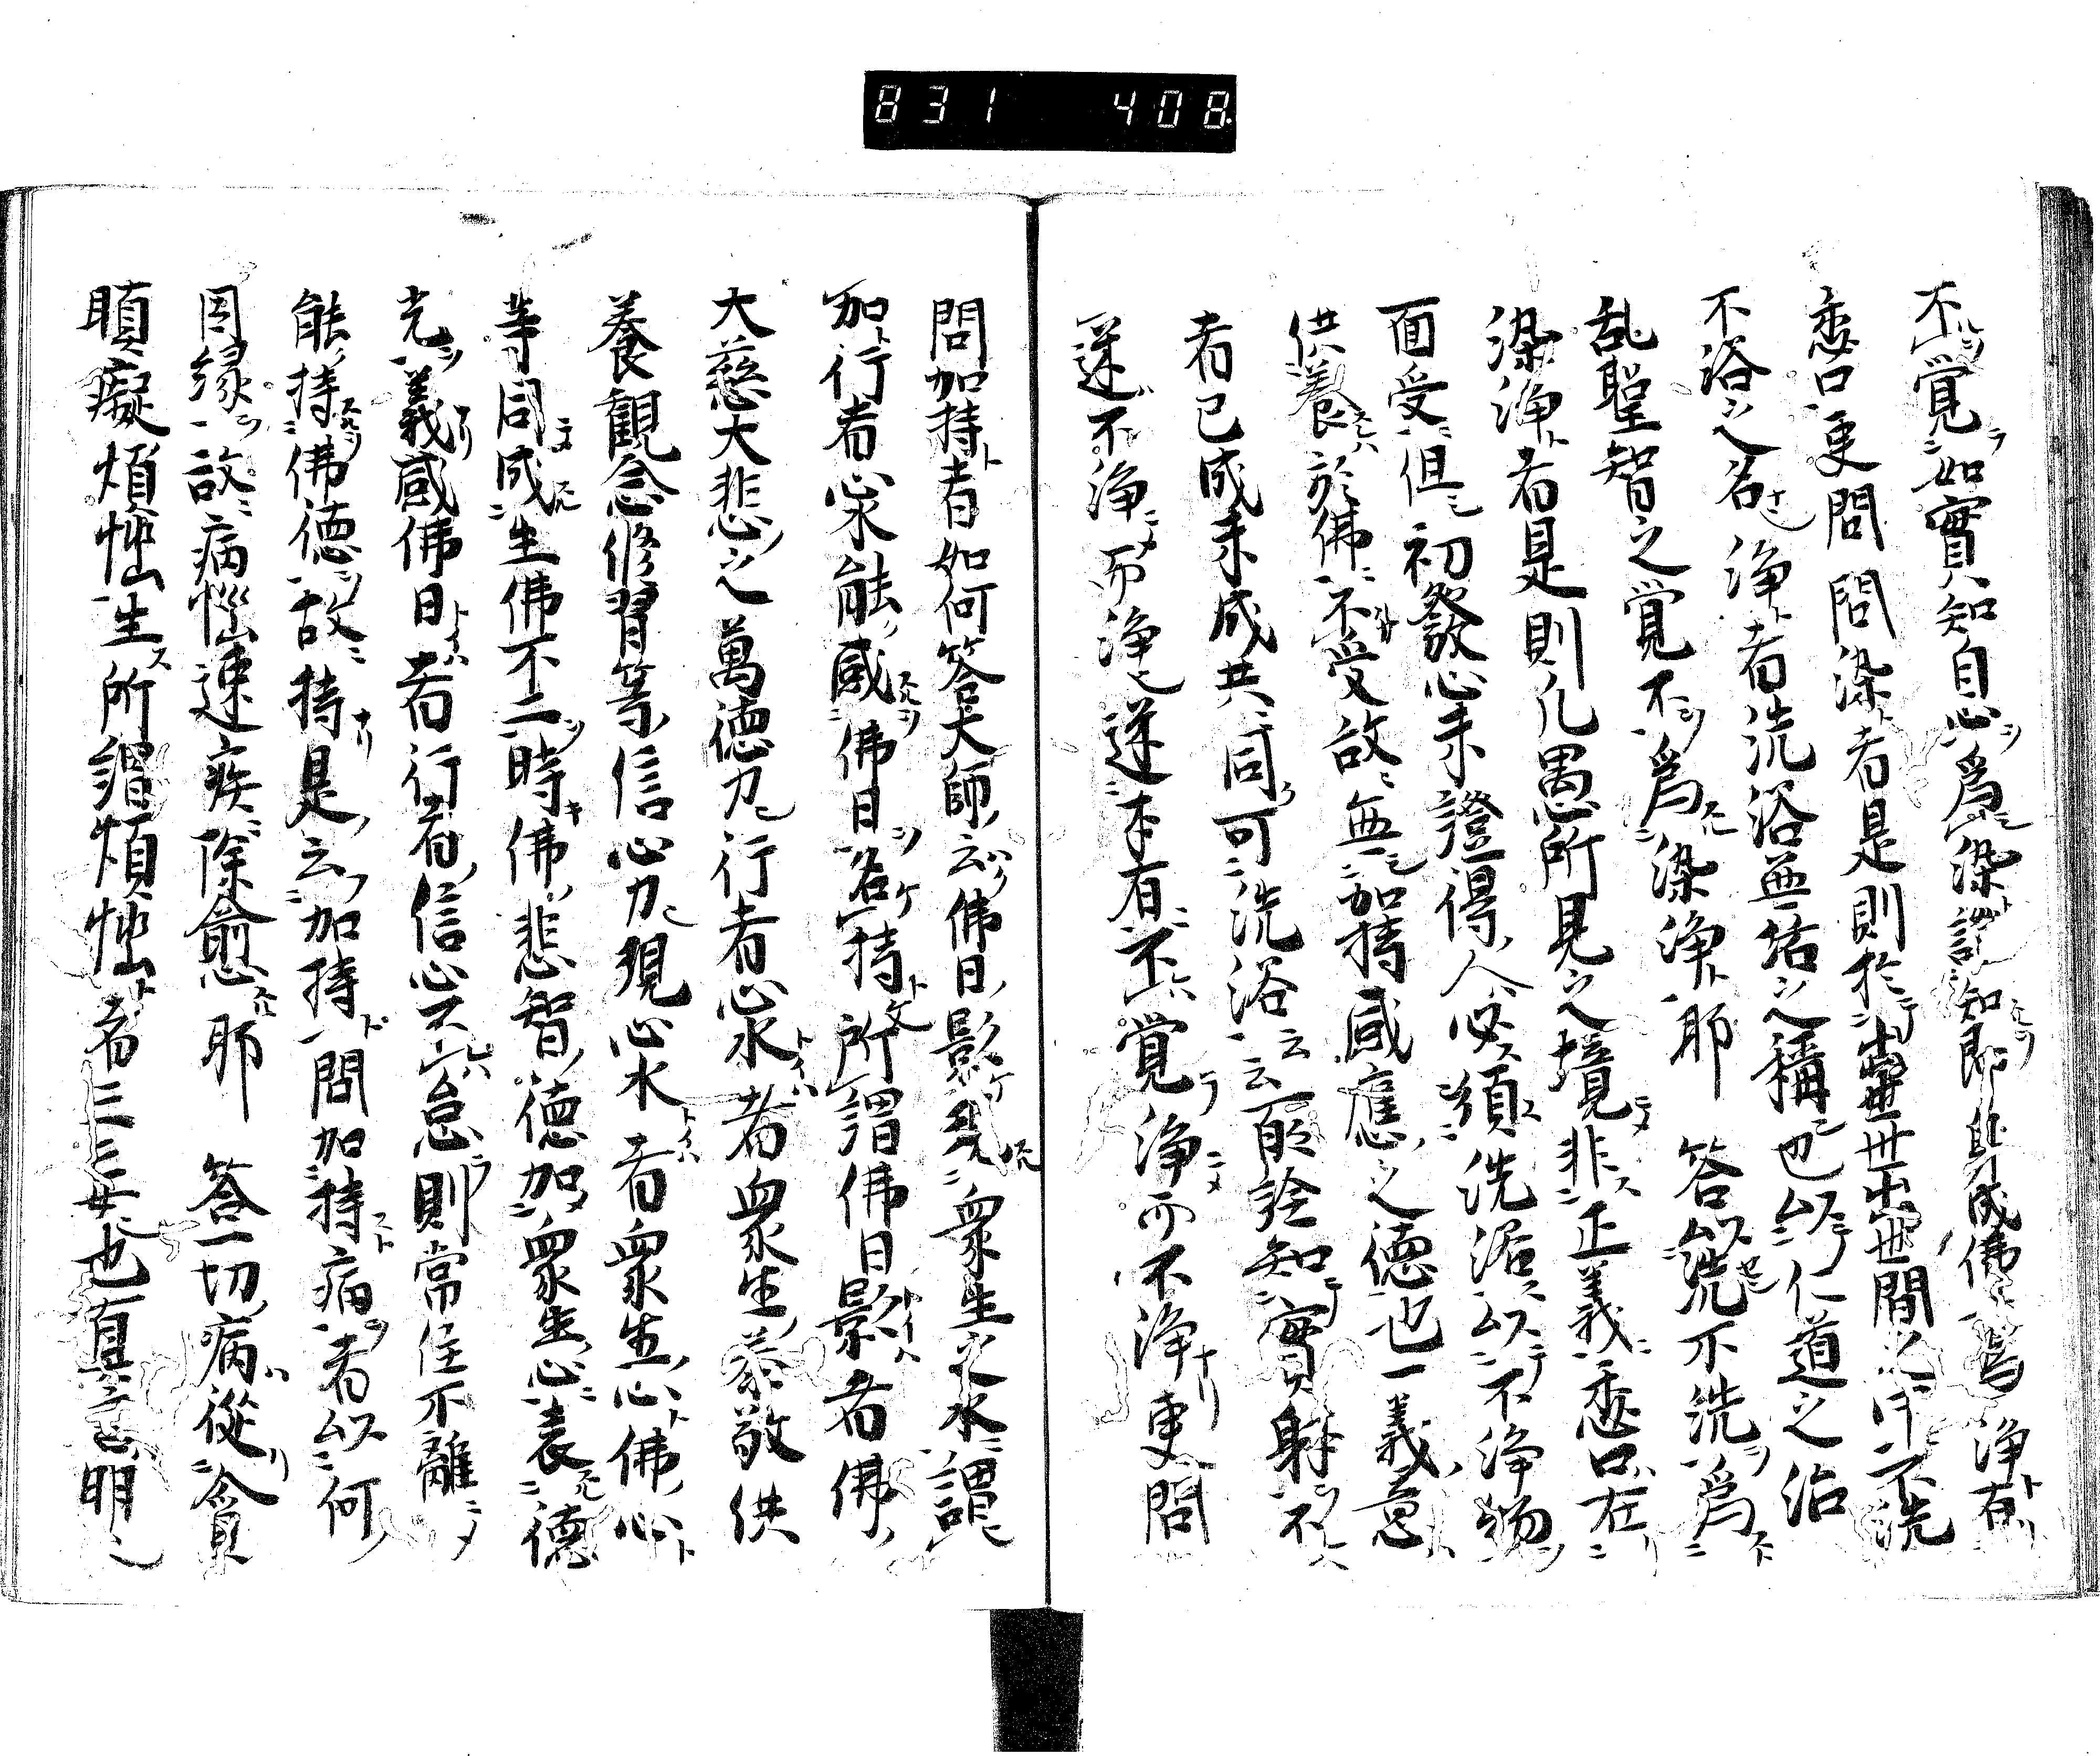 831 408
不覚如實知自心為染證知即身成佛為浄有
悉口更問 問染者是則於世出世間不洗
不浴之名浄者洗浴無垢之稱也以仁道之治
乱聖智之覚不為染浄耶 答以洗不洗為
染浄者是則凡愚所見之境非正義悉口在
面受但初發心未證得人必須洗浴以不浄物
供養於佛不受故無加持感應之徳也一義意
者已成未成共同可洗浴云云能詮知實躰不
迷不浄而浄迷本有不覚浄而不浄更問
問加持者如何答大師云佛日影現衆生之水謂
加行者心水能感佛日名持所謂佛日影者佛
大慈大悲之萬徳力行者心水者衆生恭敬供
養観念修習等信心力現心水者衆生心佛心
等同成生佛不二時佛悲智徳加衆生心表徳
光義感佛日者行者信心不怠則常住不離
能持佛徳故持是云加持 問加持病者以何
因縁故病悩速疾除愈耶 答一切病従貪
瞋癡煩悩生所謂煩悩者三三毒也真言明